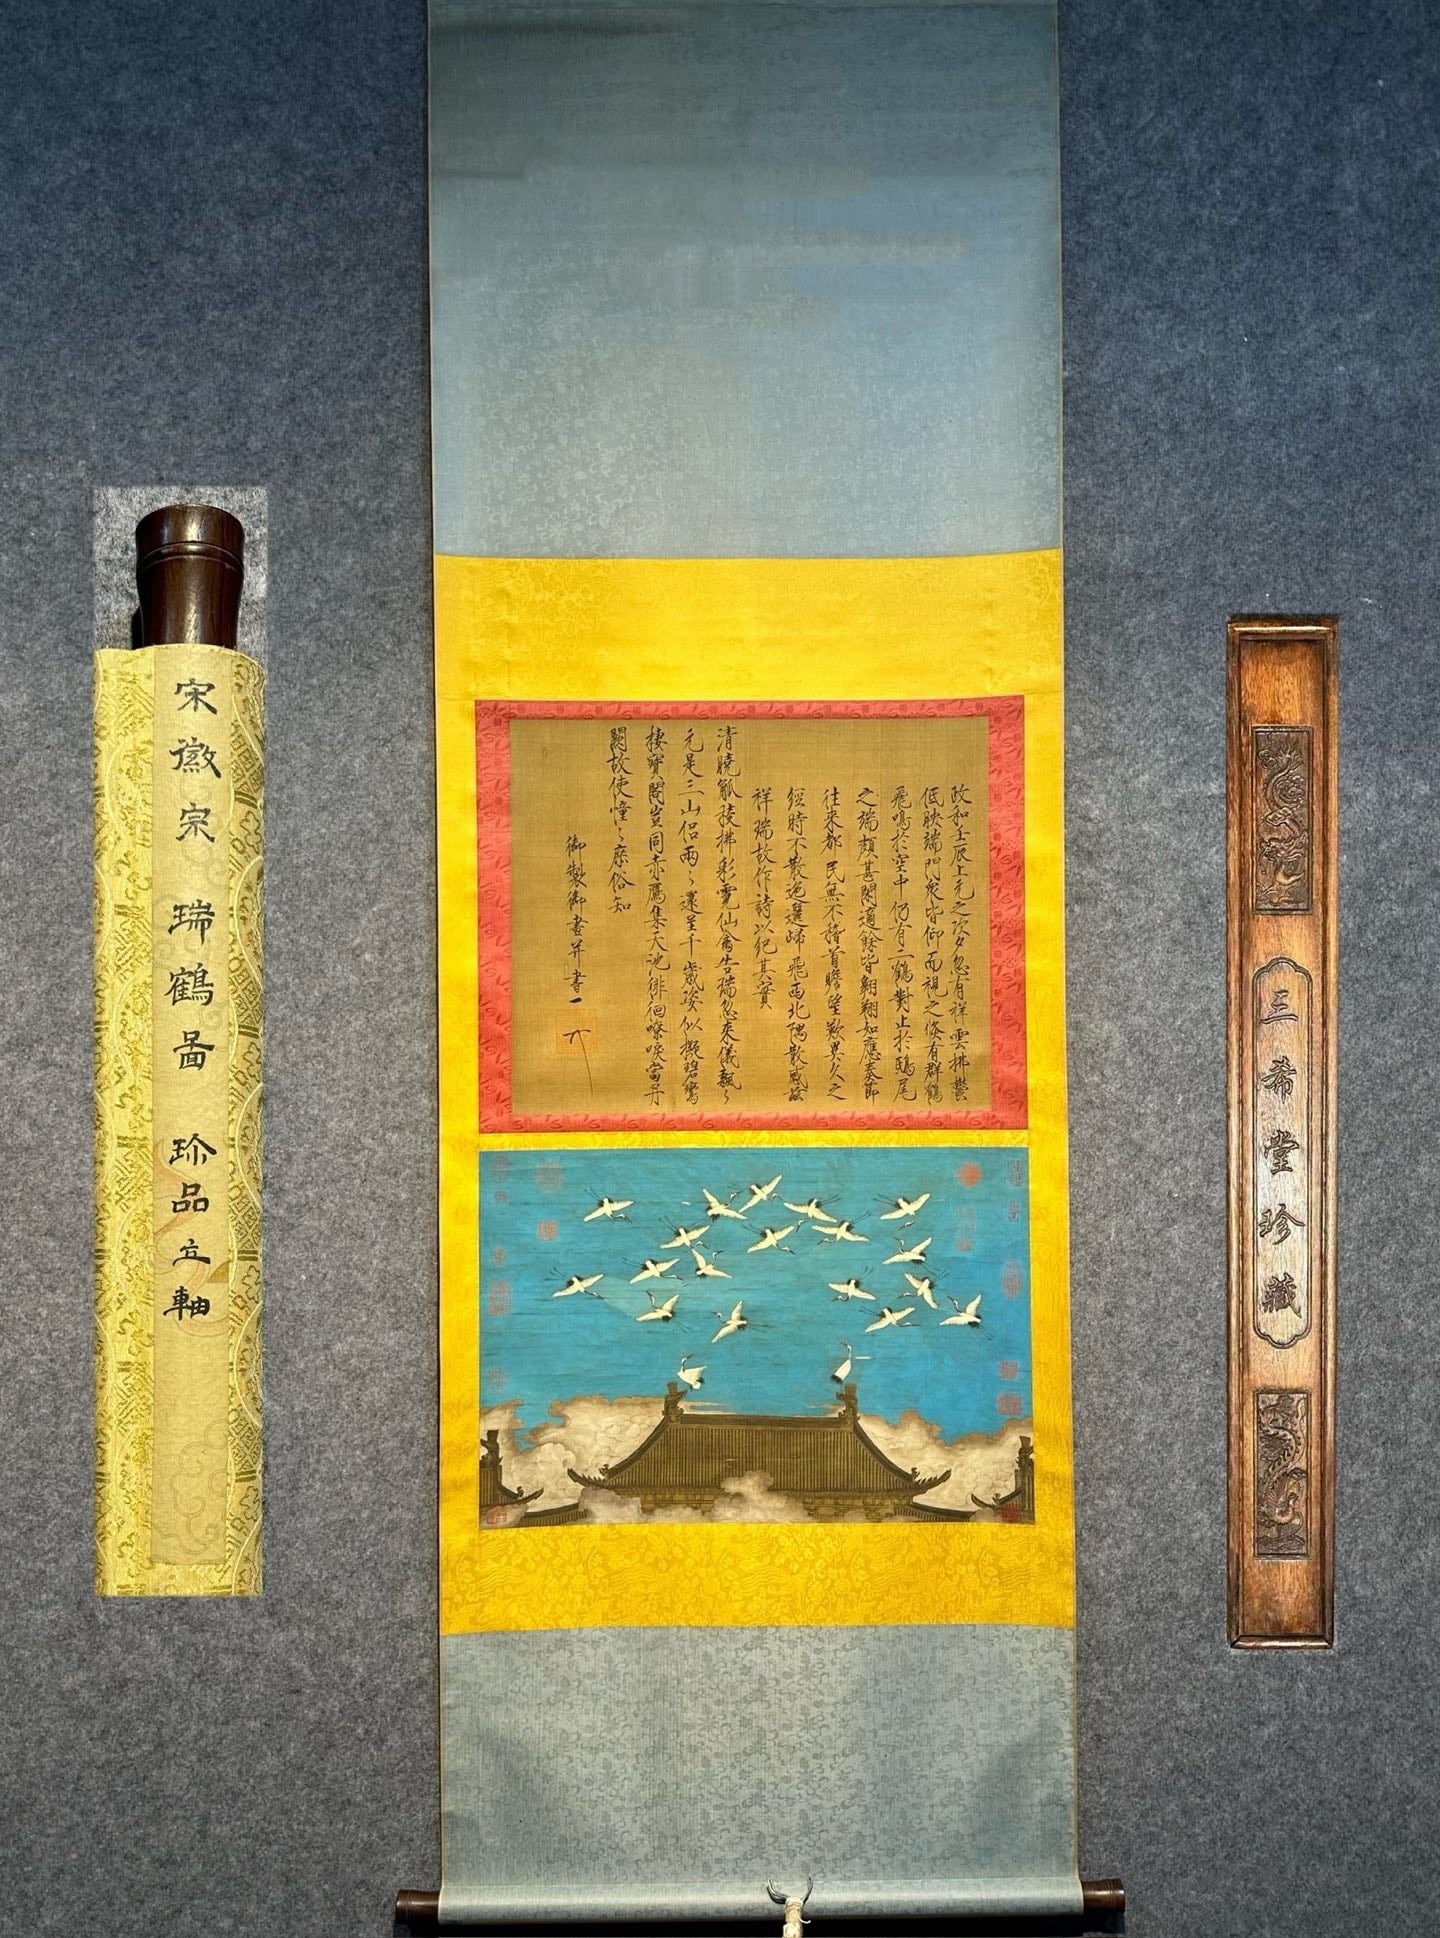 宋徽宗 瑞鶴圖 珍品立軸
政和壬辰上元之次夕忽有祥雲拂鬱
低映端門衆皆仰而視之倏有群鶴
飛鳴於空中仍有二鶴對止於鴟尾
之端頗甚閑適餘皆翱翔如應奏節
往來都民無不稽首瞻望歎異久之
經時不散迤邐歸飛西北隅散感茲
祥瑞故作詩以紀其實
清曉觚稜拂彩霓仙禽告瑞忽來儀飄〻
元是三山侶兩〻還呈千歲姿似擬碧鸞
棲寶閣豈同赤鴈集天池徘徊嘹唳當丹
闕故使憧〻庶俗知
御製御畫并書
三希堂珍藏